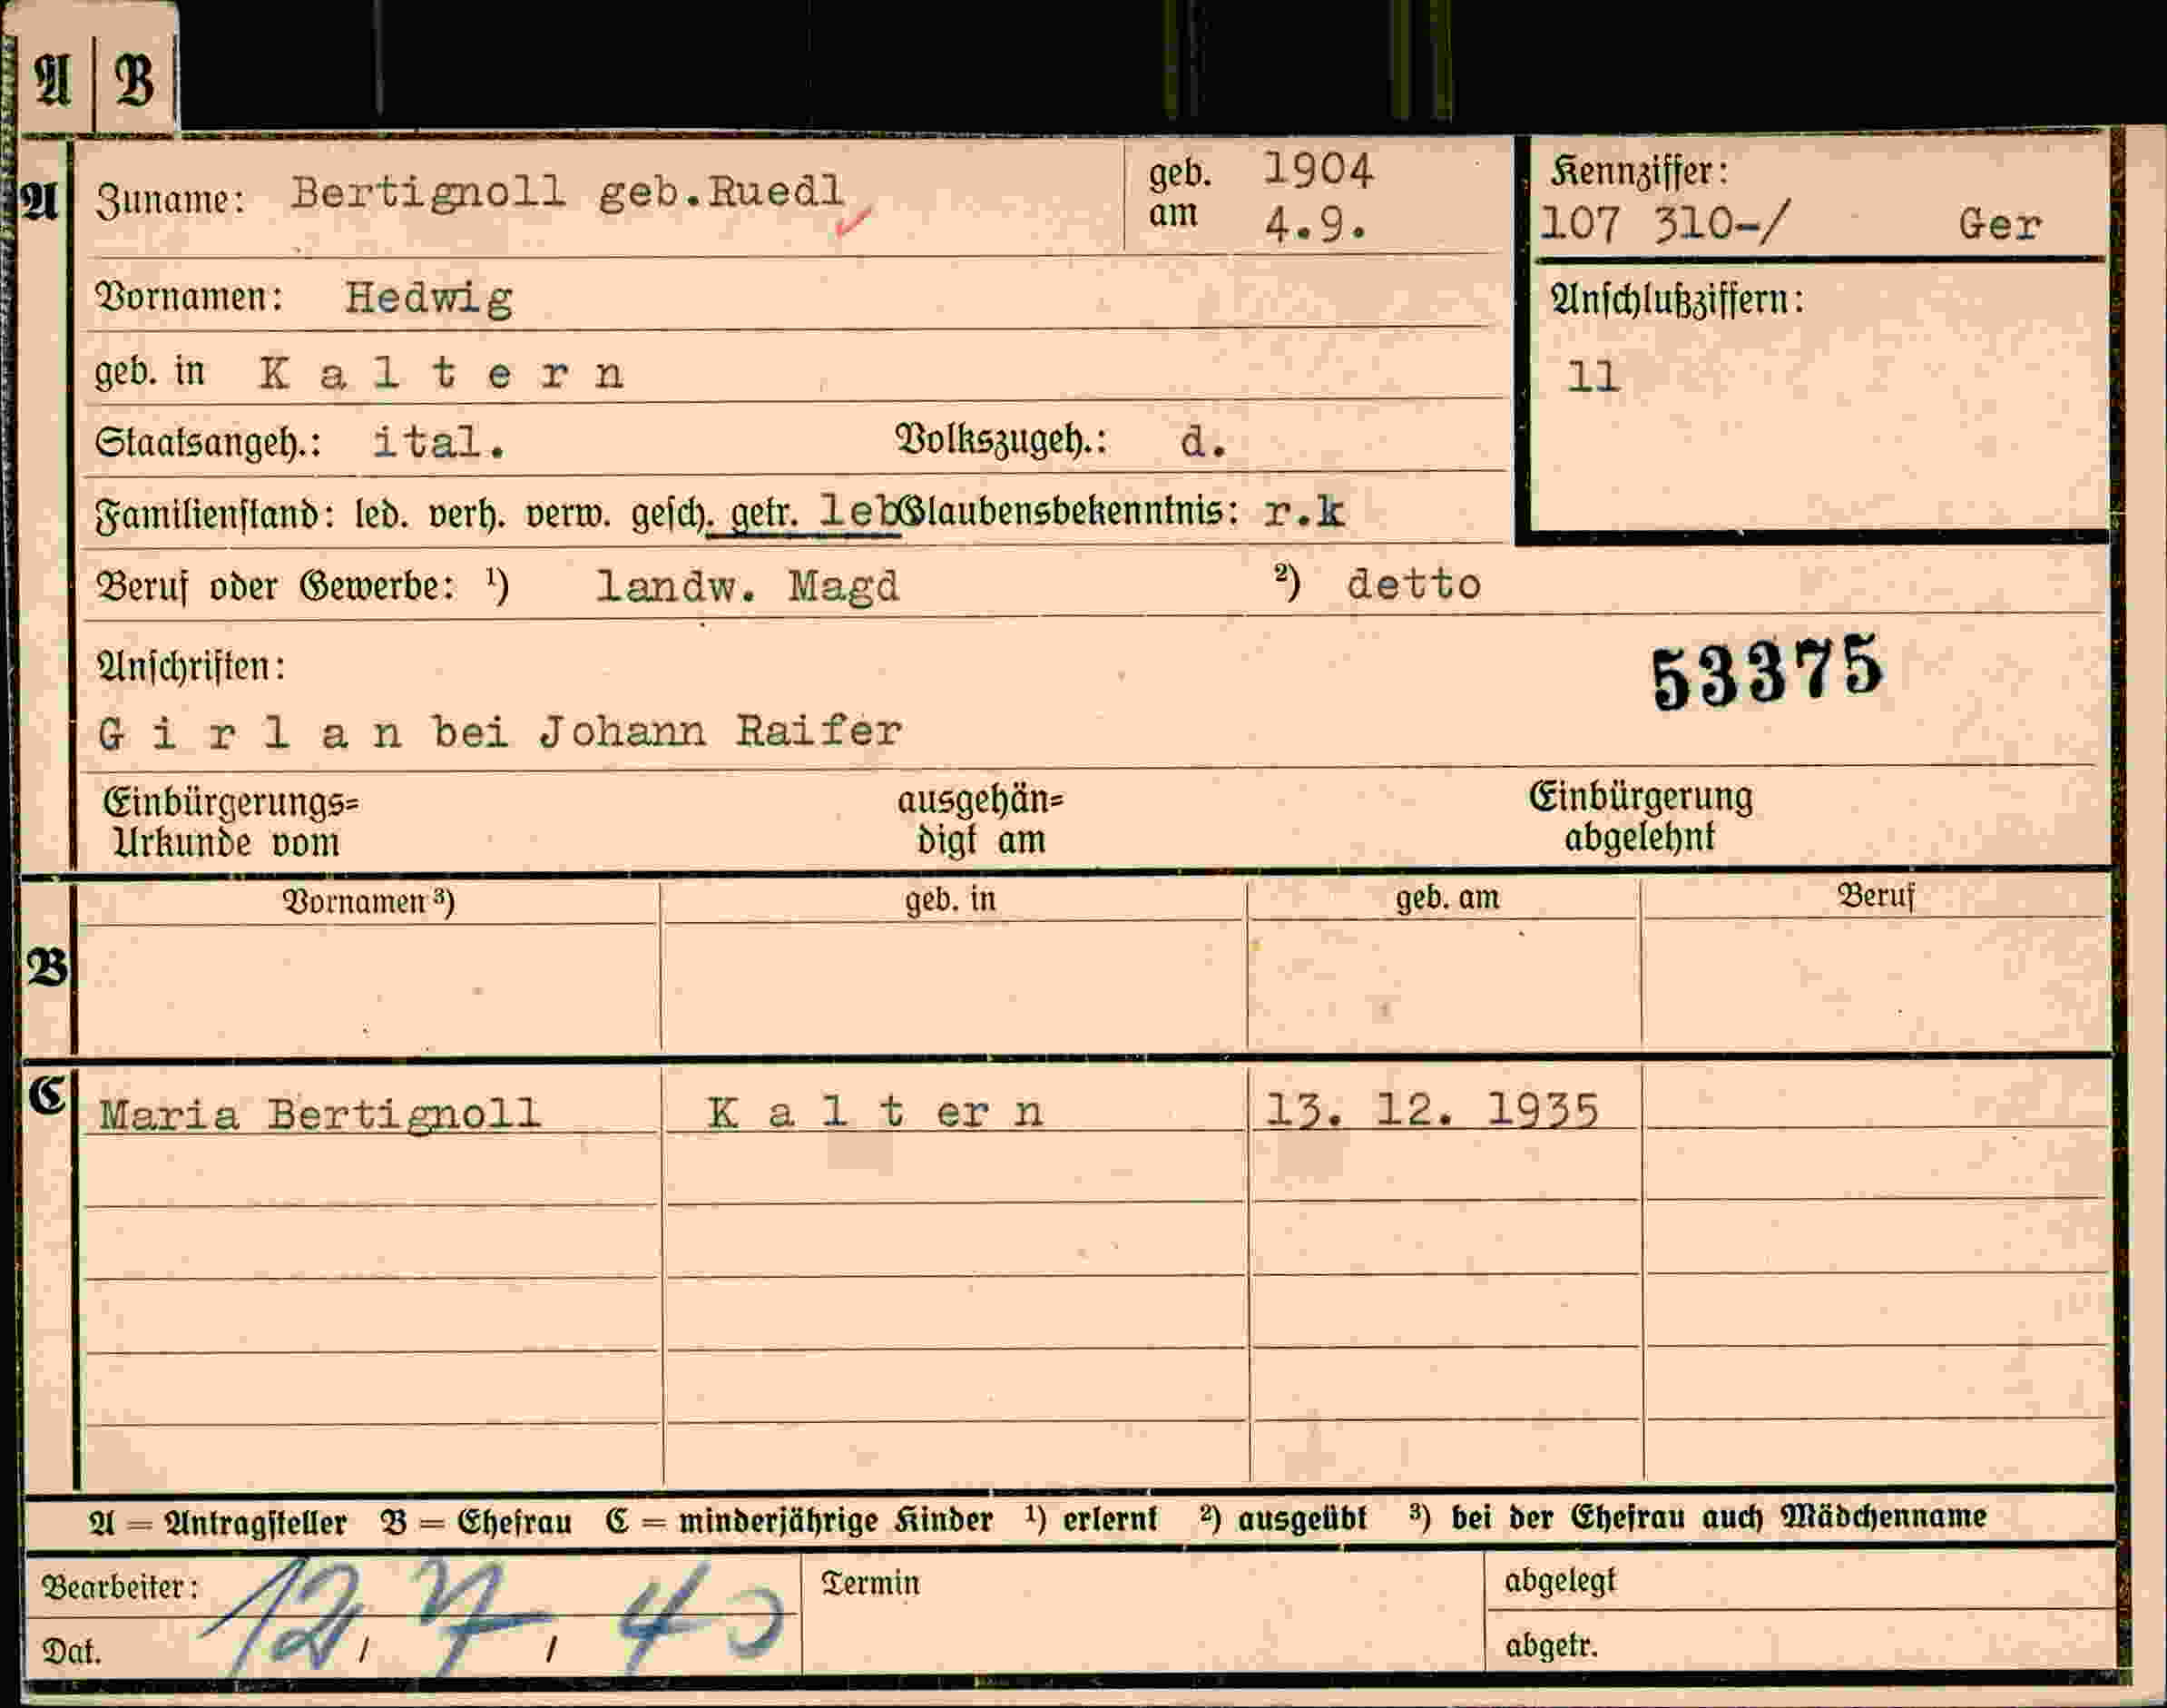 A B
A Zuname: Bertignoll geb.Ruedl geb. am 1904 4.9. Kennziffer:
107 310-/ Ger
Vornamen: Hedwig Anschlußziffern:
geb. in K a l t e r n 11
Staatsangeh.: ital. Volkszugeh.: d.
Familienstand: led. verh. verw. gesch. getr. leb Glaubensbekenntnis: r.k
Beruf oder Gewerbe: ¹) landw. Magd ²) detto
Anschriften: 53375
G i r l a n bei Johann Raifer
Einbürgerungs= ausgehän= Einbürgerung
Urkunde vom digt am abgelehnt
Vornamen ³) geb. in geb. am Beruf
B
C Maria Bertignoll K a l t er n 13. 12. 1935
A = Antragsteller B = Ehefrau C = minderjährige Kinder ¹) erlernt ²) ausgeübt ³) bei der Ehefrau auch Mädchenname
Bearbeiter: Termin abgelegt
Dat. 12, 7, 40 abgetr.